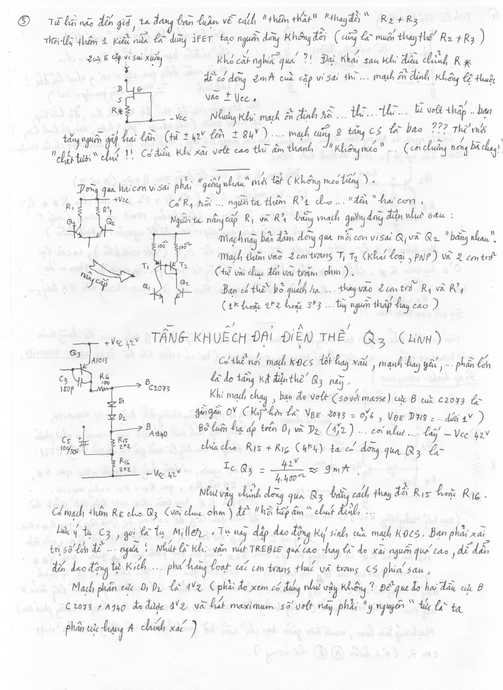 ⑤ Từ hồi nào đến giờ, ta đang bàn luận về cách "thêm thắt" "thay đổi" R2 + R3
Thôi thì thêm 1 kiểu nữa là dùng jFET tạo nguồn dòng không đổi (cũng là muốn thay thế R2 + R3)
2 cực E cặp vi sai xuống
D
S
R*
- Vcc
Khó cắt nghĩa quá ?! Đại khái sau khi điều chỉnh R*
để có dòng 2mA của cặp vi sai thì ... mạch ổn định không lệ thuộc
vào ± Vcc.
Nhưng khi mạch ổn định rồi ... thì ... thì ... từ volt thấp .. bạn
tăng nguồn gấp hai lần (từ ± 42V lên ± 84V) .... mạch cũng
"chết tươi" chứ !! Có điều khi xài volt cao thì âm thanh "không méo"
Dòng qua hai con vi sai phải "giống nhau" mới tốt (không méo tiếng).
+Vcc
R1
R'1
Q1
Q2
Có R1 rồi ... người ta thêm R'1 cho ... "đều" hai con.
Người ta nâng cấp R1 và R'1 bằng mạch gương dòng điện như sau :
nâng cấp
100
100
T1
T2
Q1
Q2
Mạch này bảo đảm dòng qua mỗi con vi sai Q1 và Q2 "bằng nhau".
Mạch thêm vào 2 con trans T1 T2 (khác loại, PNP) và 2 con trở
(từ vài chục đến vài trăm ohm).
Bạn có thể bỏ quách ... thay vào 2 con trở R1 và R'1
TẦNG KHUẾCH ĐẠI ĐIỆN THẾ Q3 (LINH)
+ Vcc 42V
Q3
A1013
C3
180p
R14
100
B
C2073
D1
D2
B
A940
C5
R15
2K2
R16
2K2
- Vcc 42V
Có thể nói mạch KĐCS tốt hay xấu, mạnh hay yếu, .. phần lớn
là do tầng KĐ điện thế Q3 này.
Khi mạch chạy, bạn đo volt (so với masse) cực B của C2073 là
gần gần 0V
Bỏ luôn hạ áp trên D1 và D2 (1V2) ... coi như ... lấy - Vcc 42V
chia cho R15 + R16 (4K4) ta có dòng qua Q3 là
Ic Q3 = 42V / 4.400Ω ≈ 9mA.
Như vậy chỉnh dòng qua Q3 bằng cách thay đổi R15 hoặc R16.
Có mạch thêm RE cho Q3 (vài chục ohm) để "hồi tiếp âm" chút đỉnh ...
Lưu ý tụ C3, gọi là tụ Miller. Tụ này dập dao động ký sinh của mạch KĐCS. Bạn phải xài
trị số lớn để ... ngừa : Nhất là khi vặn nút TREBLE quá cao hay là do xài nguồn quá cao, dễ dẫn
đến dao động tự kích ... phá hàng loạt các con trans thúc và trans CS phía sau.
Mạch phân cực D1 D2 là 1V2 (phải đo xem có đúng như vậy không? Để que đo hai đầu cực B
C2073 + A940 đo được 1V2 và hát maximum số volt này phải "y nguyên" tức là ta
phân cực hạng A chính xác)